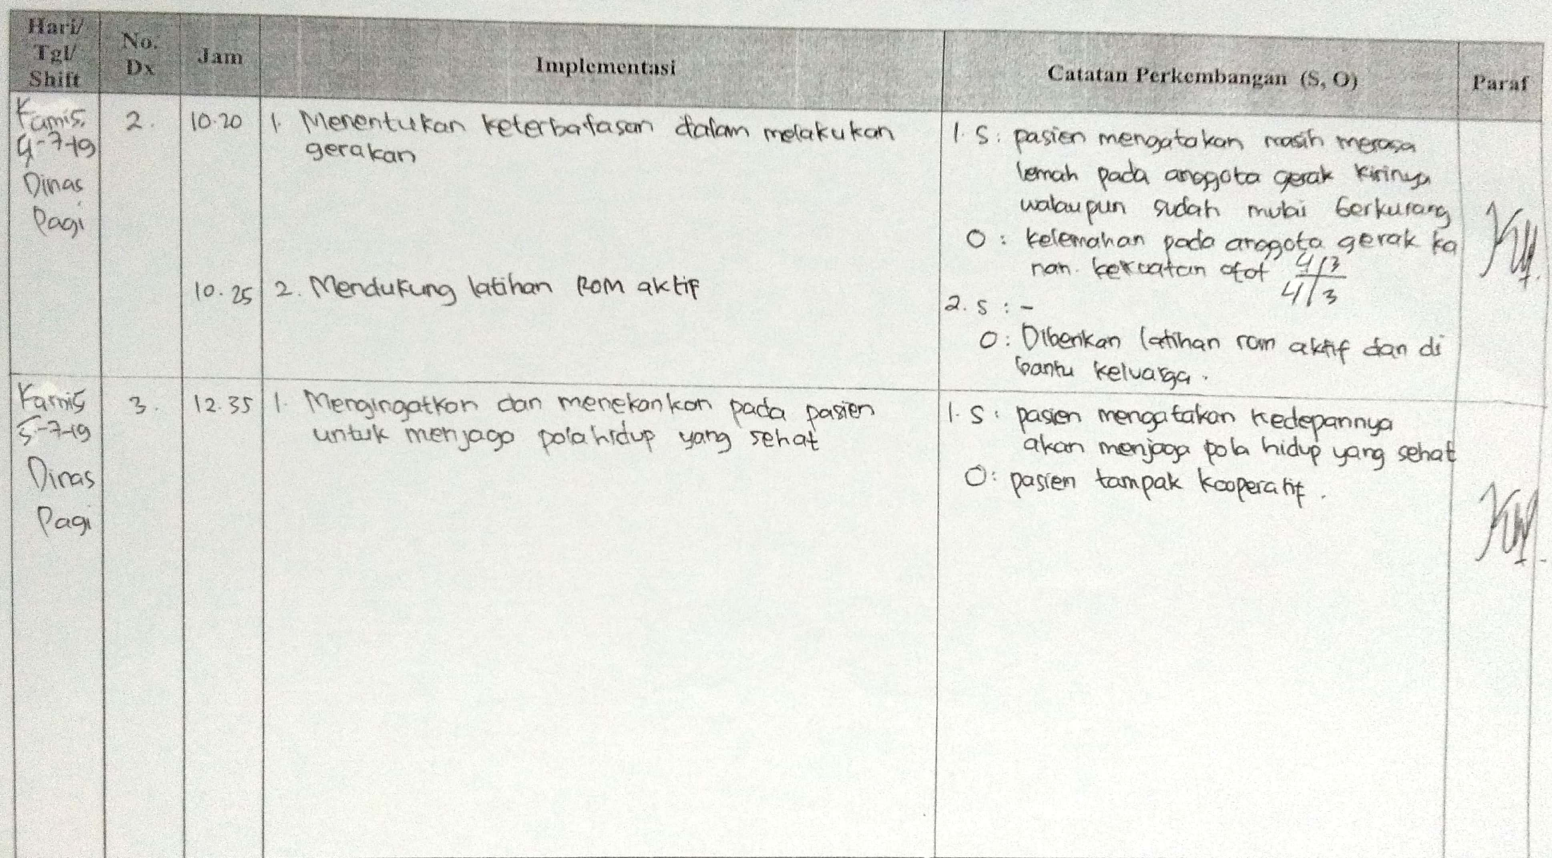 Hari/
Tgl/
Shift
No.
Dx
Jam
Implementasi
Catatan Perkembangan (S, O)
Paraf
Kamis,
4-7-19
Dinas
Pagi
2.
10.20
1. Menentukan keterbatasan dalam melakukan
gerakan
10.25
2. Mendukung latihan ROM aktif
1. S: pasien mengatakan masih merasa
lemah pada anggota gerak kirinya
walaupun sudah mulai berkurang
O: kelemahan pada anggota gerak ka
nan. kekuatan otot 4|3
4|3
2. S : -
O: Diberikan latihan rom aktif dan di
bantu keluarga.
Kamis
5-7-19
Dinas
Pagi
3.
12.35
1. Mengingatkan dan menekankan pada pasien
untuk menjaga pola hidup yang sehat
1. S: pasien mengatakan kedepannya
akan menjaga pola hidup yang sehat
O: pasien tampak kooperatif.